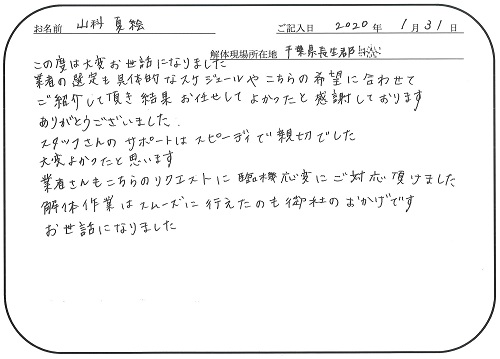 お名前 山科 夏絵 ご記入日 2020 年 1 月 31 日
解体現場所在地 千葉県長生郡
この度は大変お世話になりました
業者の選定も具体的なスケジュールやこちらの希望に合わせて
ご紹介して頂き結果お任せしてよかったと感謝しております
ありがとうございました.
スタッフさんのサポートはスピーディで親切でした
大変よかったと思います
業者さんもこちらのリクエストに臨機応変にご対応頂けました
解体作業はスムーズに行えたのも御社のおかげです
お世話になりました